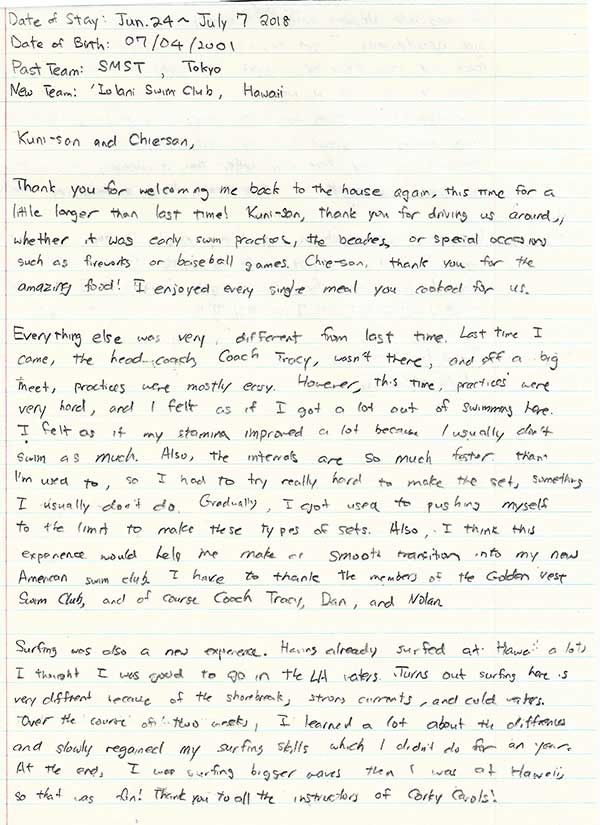 Date of Stay: Jun. 24 ~ July 7 2018
Date of Birth: 07/04/2001
Past Team: SMST, Tokyo
New Team: 'Iolani Swim Club, Hawaii
Kuni-son and Chie-san,
Thank you for welcoming me back to the house again, this time for a
little longer than last time! Kuni-son, thank you for driving us around,
whether it was early swim practices, the beaches, or special occasions
such as fireworks or baseball games. Chie-san, thank you for the
amazing food! I enjoyed every single meal you cooked for us.
Everything else was very different from last time. Last time I
came, the head coach, Coach Tracy, wasn't there, and off a big
meet, practices were mostly easy. However, this time, practices were
very hard, and I felt as if I got a lot out of swimming here.
I felt as if my stamina improved a lot because I usually don't
swim as much. Also, the intervals are so much faster than
I'm used to, so I had to try really hard to make the set, something
I usually don't do. Gradually, I got used to pushing myself
to the limit to make these types of sets. Also, I think this
experience would help me make a smooth transition into my new
American swim club. I have to thank the members of the Golden West
Swim Club, and of course Coach Tracy, Dan, and Nolan
Surfing was also a new experience. Having already surfed at Hawaii a lot,
I thought I was good to go in the LA waters. Turns out surfing here is
very diffrent because of the shorebreak, strong currents, and cold waters.
Over the course of two weeks, I learned a lot about the differences
and slowly regained my surfing skills which I didn't do for an year.
At the end, I was surfing bigger waves then I was at Hawaii,
so that was fun! Thank you to all the instructors of Corky Carols!